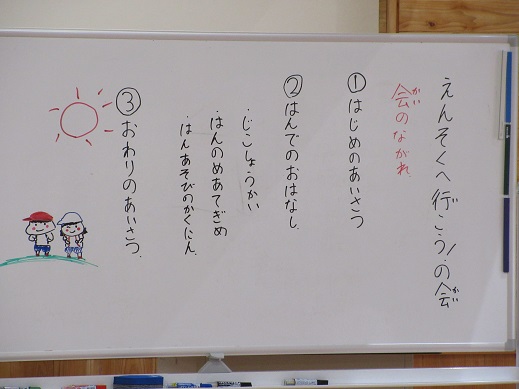 えんそくへ行こう!の会
かい
会のながれ
かい
①はじめのあいさつ
②はんでのおはなし
・じこしょうかい
・はんのめあてぎめ
・はんあそびのかくにん
③おわりのあいさつ